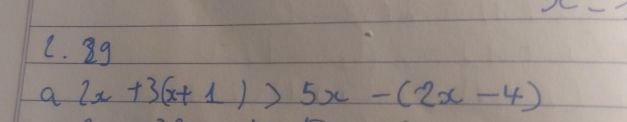 2. 39
a 2x + 3(x + 1) > 5x - (2x - 4)